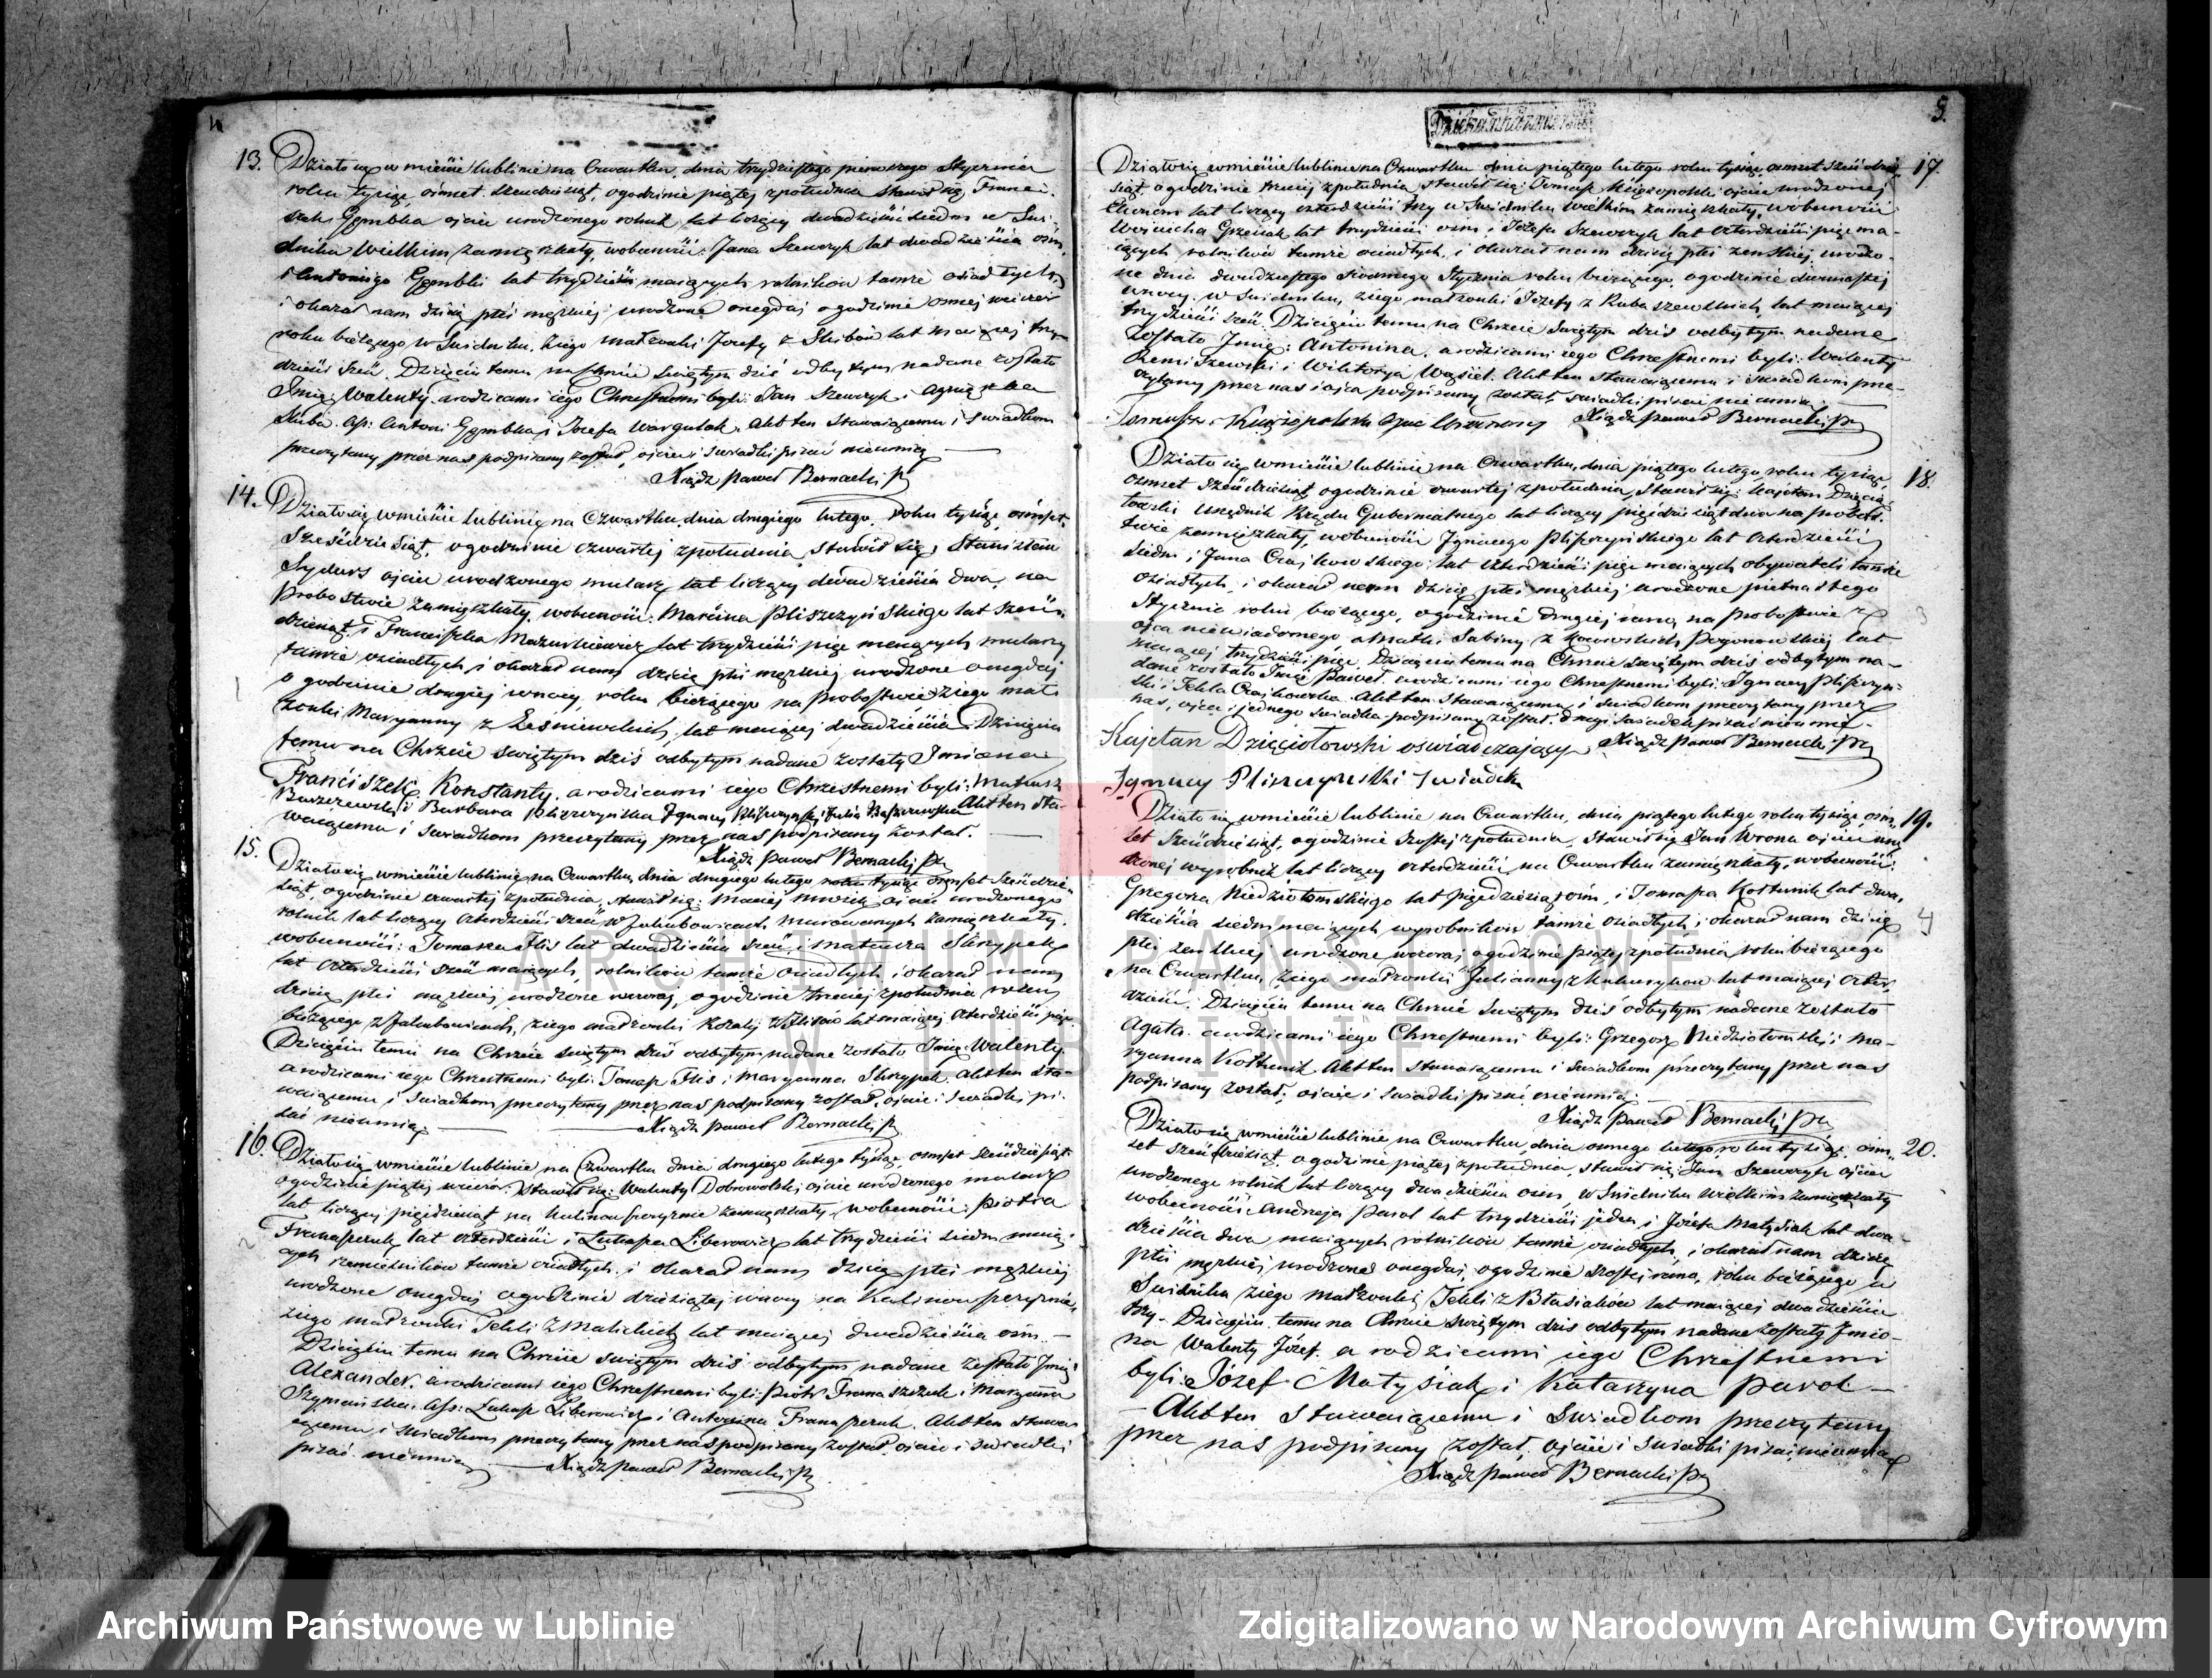 4
13. Działo się w mieście Lublinie na Czwartku, dnia trzydziestego pierwszego Stycznia
roku tysiąc ośmset sześćdziesiąt, ogodzinie piątej zpołudnia stawił się Franci-
szek Gembka ojciec urodzonego rolnik lat liczący dwadzieścia siedm w Świ-
dniku Wielkim zamięszkały, wobecności: Jana Szewczyk lat dwadzieścia ośm
i Antoniego Gembki lat trzydzieści maiących rolników tamże osiadłych,
i okazał nam dziecię płci męzkiej urodzone onegdaj ogodzinie ósmej wieczór
roku bieżącego w Świdniku, ziego małżonki Józefy z Skibów lat maiącej trzy-
dzieści sześć. Dziecięciu temu na Chrzcie świętym dziś odbytym nadane zostało
Imię: Walenty. arodzicami iego Chrzestnemi byli: Jan Szewczyk i Agnieszka
Skiba. Ass: Antoni Gembka i Józefa Wargulak. Akt ten Stawaiącemu i świadkom
przeczytany przez nas podpisany został, ojciec i świadki pisać nieumią
Xiądz Paweł Bernacki
14. Działo się wmieście Lublinie na Czwartku, dnia drugiego lutego, roku tysiąc ośmset
sześćdziesiąt, ogodzinie czwartej zpołudnia stawił się: Stanisław
ojciec urodzonego mularz lat liczący dwadzieścia dwa, na
Probostwie zamięszkały, wobecności: Marcina Pliszczyńskiego lat sześć-
dziesiąt i Franciszka Mazurkiewicz lat trzydzieści pięć maiących mularzy
tamże osiadłych i okazał nam dziecię płci męzkiej urodzone onegdaj
o godzinie drugiej wnocy, roku bieżącego na Probostwie ziego mał-
żonki Maryanny z Leśniewskich, lat maiącej dwadzieścia Dziecięciu
temu na Chrzcie świętym dziś odbytym nadane zostały Imiona
Franciszek, Konstanty, arodzicami iego Chrzestnemi byli: Mateusz
i Barbara Pliszczyńska Ignacy Pliszczyński i Julia Akt ten sta-
waiącemu i świadkom przeczytany przez nas podpisany został.
Xiądz Paweł Bernacki
15. Działo się wmieście Lublinie na Czwartku, dnia drugiego lutego roku tysiąc ośmset sześćdzie-
siąt, ogodzinie czwartej zpołudnia, stawił się: Maciej ojciec urodzonego
rolnik lat liczący czterdzieści sześć w Jakubowicach Murowanych zamięszkały.
wobecności: Tomasza Flis lat dwadzieścia sześć, i Mateusza Skrzypek
lat czterdzieści sześć maiących, rolników tamże osiadłych i okazał nam
dziecię płci męzkiej, urodzone wczoraj, ogodzinie trzeciej zpołudnia roku
bieżącego w Jakubowicach, ziego małżonki Rozalij z Flisów lat maiącej czterdzieści pięć
Dziecięciu temu na Chrzcie świętym dziś odbytym nadane zostało Imię: Walenty.
arodzicami iego Chrzestnemi byli: Tomasz Flis i Maryanna Skrzypek. Akt ten sta-
waiącemu i świadkom przeczytany przez nas podpisany został, ojciec i świadki pi-
sać nieumią.
Xiądz Paweł Bernacki
16. Działo się wmieście Lublinie na Czwartku dnia drugiego lutego tysiąc ośmset sześćdziesiąt
ogodzinie piątej wieczór. Stawił się: Walenty Dobrowolski ojciec urodzonego
lat liczący pięćdziesiąt na Kalinowszczyznie zamięszkały, wobecności: Piotra
Franaszczuk lat czterdzieści i Łukasza Liberowicz lat trzydzieści siedm maią-
cych rzemieślników tamże osiadłych, i okazał nam dziecię płci męzkiej
urodzone onegdaj ogodzinie dziesiątej wnocy na Kalinowszczyznie,
ziego małżonki Tekli z Malickich lat maiącej dwadzieścia ośm —
Dziecięciu temu na Chrzcie świętym dziś odbytym nadane zostało Imię
Alexander. arodzicami iego Chrzestnemi byli: Piotr Franaszczuk i Maryanna
Szymańska. Ass: Łukasz Liberowicz i Antonina Franaszczuk. Akt ten stawa-
iącemu i świadkom przeczytany przez nas podpisany został, ojciec i świadki
pisać nieumią
Xiądz Paweł Bernacki
5.
17.
Działo się wmieście Lublinie na Czwartku dnia piątego lutego roku tysiąc ośmset sześćdzie-
siąt, ogodzinie trzeciej zpołudnia stawił się: Tomasz Księżopolski ojciec urodzonej
lat liczący czterdzieści trzy w Świdniku Wielkim zamięszkały, wobecności
Woyciecha Grzesiak lat trzydzieści ośm i Józefa Szewczyk lat czterdzieści pięć ma-
iących rolników tamże osiadłych, i okazał nam dziecię płci żenskiej, urodzo-
ne dnia dwudziestego siódmego Stycznia roku bieżącego, ogodzinie dwunastej
wnocy. w Świdniku, ziego małżonki Józefy z Kubaszewskich, lat maiącej
trzydzieści sześć. Dziecięciu temu na Chrzcie świętym dziś odbytym nadane
zostało Imię: Antonina. arodzicami iego Chrzestnemi byli: Walenty
Remiszewski i Wiktorya Wąsiel. Akt ten Stawaiącemu i świadkom prze-
czytany przez nas i ojca podpisany został, świadki pisać nieumią.
Tomasz Księżopolski Xiądz Paweł Bernacki
18.
Działo się wmieście Lublinie na Czwartku, dnia piątego lutego, roku tysiąc
ośmset sześćdziesiąt ogodzinie czwartej zpołudnia, stawił się: Kajetan Dzięcio-
łowski urzędnik Rządu Gubernialnego lat liczący pięćdziesiąt dwa na Probost-
wie zamięszkały, wobecności Ignacego Pliszczyńskiego lat czterdzieści
siedm, i Jana Czajkowskiego, lat czterdzieści pięć maiących obywateli tamże
osiadłych, i okazał nam dziecię płci męzkiej urodzone piętnastego
Stycznia roku bieżącego, ogodzinie drugiej zrana, na Probostwie z
ojca niewiadomego a Matki Sabiny z Pogonowskiej, lat
maiącej trzydzieści pięć. Dziecięciu temu na Chrzcie świętym dziś odbytym na-
dane zostało Imię Paweł. arodzicami iego Chrzestnemi byli: Ignacy Pliszczyń-
ski i Tekla Czajkowska. Akt ten Stawaiącemu i świadkom przeczytany przez
nas, ojca i jednego świadka podpisany został. drugi świadek pisać nieumie.
Kajetan Dzięciołowski oświadczający Xiądz Paweł Bernacki
Ignacy Pliszczynski Swiadek
19.
Działo się wmieście Lublinie na Czwartku, dnia piątego lutego roku tysiąc ośm-
set sześćdziesiąt, ogodzinie szóstej zpołudnia, stawił się Jan Wrona ojciec uro-
dzonej wyrobnik lat liczący czterdzieści, na Czwartku zamięszkały, wobecności:
Grzegorza Niedziołomskiego lat pięćdziesiąt ośm, i Tomasza Kostrunik lat dwa-
dzieścia siedm maiących wyrobników tamże osiadłych, i okazał nam dziecię
płci żenskiej urodzone wczoraj ogodzinie piątej zpołudnia roku bieżącego
na Czwartku, ziego małżonki Julianny lat maiącej czter-
dzieści. Dziecięciu temu na Chrzcie świętym dziś odbytym nadane zostało
Agata. arodzicami iego Chrzestnemi byli: Grzegorz Niedziołomski, i Ma-
ryanna Kostrunik. Akt ten Stawaiącemu i świadkom przeczytany przez nas
podpisany został; ojciec i świadki pisać nieumią.
Xiądz Paweł Bernacki
20.
Działo się wmieście Lublinie na Czwartku, dnia ósmego lutego, roku tysiąc ośm-
set sześćdziesiąt, ogodzinie piątej zpołudnia, stawił się: Jan Szewczyk ojciec
urodzonego rolnik lat liczący dwadzieścia ośm, w Świdniku Wielkim zamięszkały
wobecności: Andrzeja Parol lat trzydzieści jeden i Józefa Matysiak lat dwa-
dzieścia dwa maiących rolników tamże osiadłych, i okazał nam dziecię
płci męzkiej, urodzone onegdaj, ogodzinie szóstej zrana, roku bieżącego w
Świdniku ziego małżonki Tekli z Błasiaków lat maiącej dwadzieścia
trzy. Dziecięciu temu na Chrzcie świętym dziś odbytym nadane zostały Imio-
na Walenty Józef. a rodzicami iego Chrzestnemi
byli: Józef Matysiak i Katarzyna Parol —
Akt ten Stawaiącemu i świadkom przeczytany
przez nas podpisany został. ojciec i świadki pisać nieumią
Xiądz Paweł Bernacki
ARCHIWUM PAŃSTWOWE
W LUBLINIE
Archiwum Państwowe w Lublinie
Zdigitalizowano w Narodowym Archiwum Cyfrowym